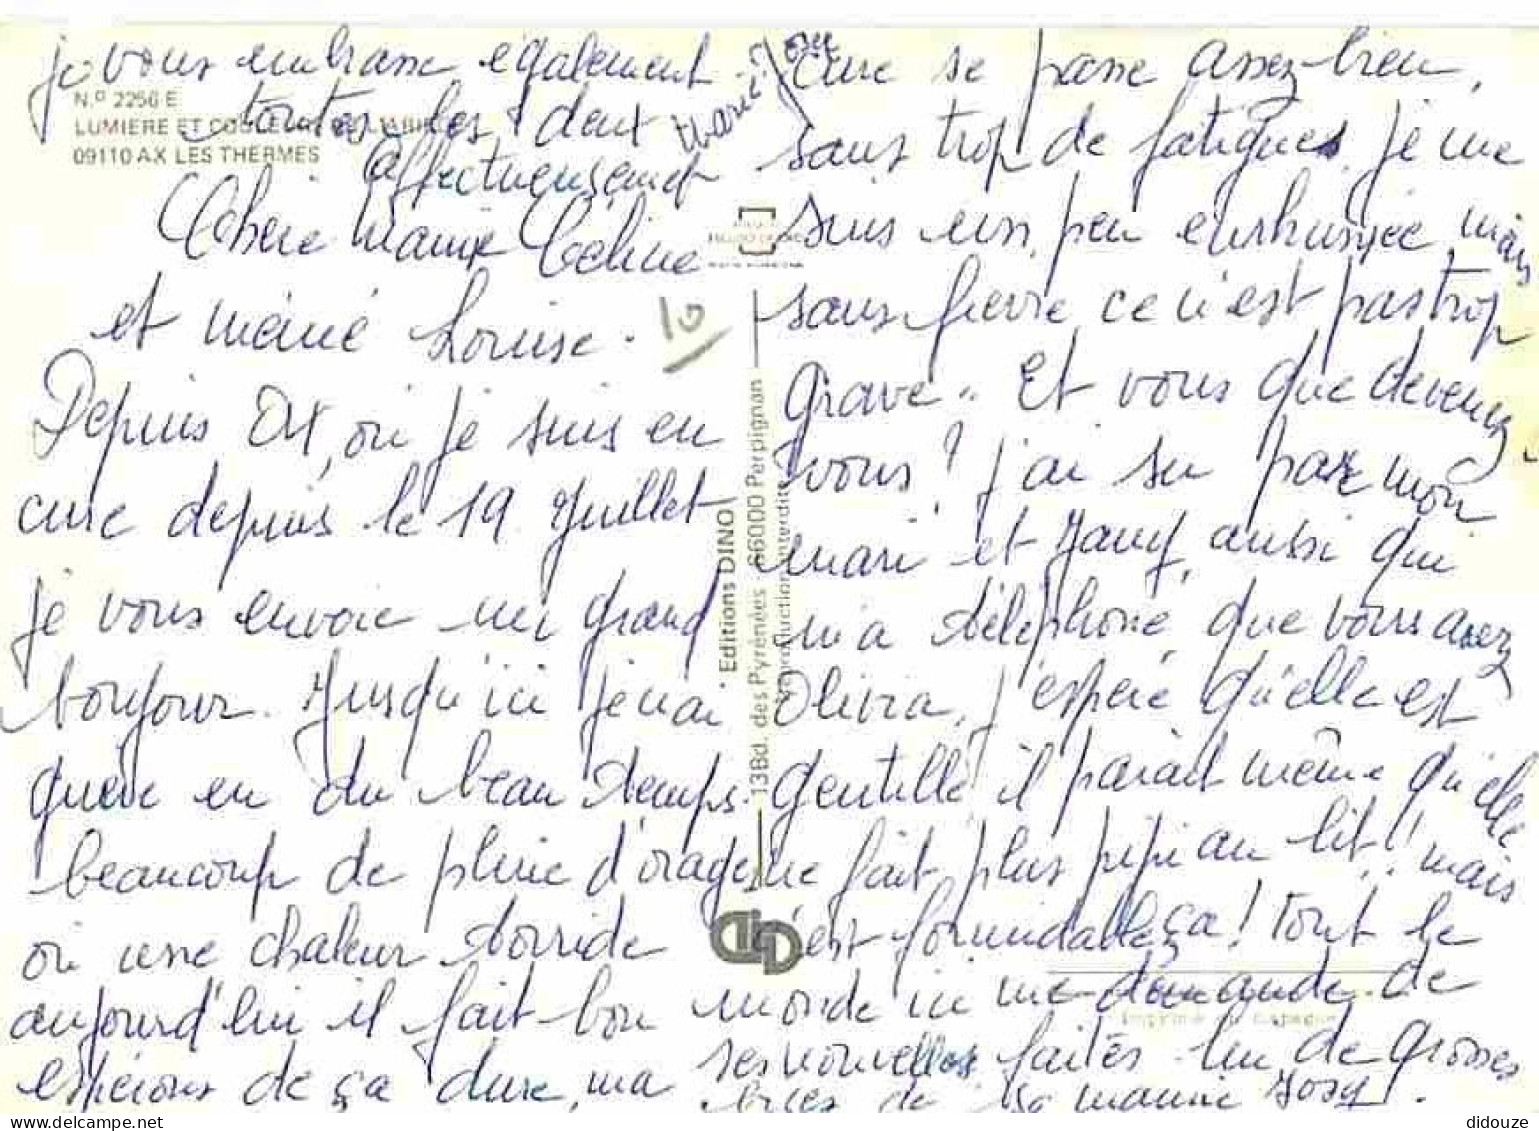 N.º 2256 E
LUMIERE ET COULEURS DE L'ARIEGE
09110 AX LES THERMES
Chère mamie Céline
et mémé Louise.
Depuis Ax, où je suis en
cure depuis le 19 Juillet
je vous envoie un grand
bonjour. Jusqu'ici je n'ai
guère eu du beau temps.
beaucoup de pluie d'orages
ou une chaleur torride
aujourd'hui il fait bon
espérons que ça dure, ma
cure se passe assez bien,
sans trop de fatigues, je me
suis un peu enrhumée mais
sans fièvre ce n'est pas trop
grave.. Et vous que devenez
vous? j'ai su par mon
mari et Jany, aussi qui
m'a téléphoné, que vous avez
Olivia, j'espère qu'elle est
gentille, il parait même qu'elle
ne fait plus pipi au lit!! mais
c'est formidable ça! Tout le
monde ici me demande de
ses nouvelles faites lui de grosses
bises de sa mamie Josy.
je vous embrasse également
toutes les deux
affectueusement
Marie-Josy
10
Editions DINO
13Bd. des Pyrénées - 66000 Perpignan
Reproduction interdite
DINO
Imprimé en Espagne
didouze